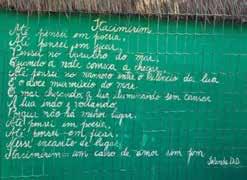 Itacimirim
Até pensei em poesia,
Até pensei em ficar,
Pensei no barulho do mar.
Quando a noite começa a chegar.
Até pensei no namoro entre o silêncio da lua
E o doce murmúrio do mar.
O mar chegando, a lua iluminando sem cansar
A lua indo e voltando,
Fiquei não há melhor lugar.
Até pensei em poesia,
Até pensei em ficar,
Nesse encanto de lugar,
Itacimirim um caso de amor sem fim